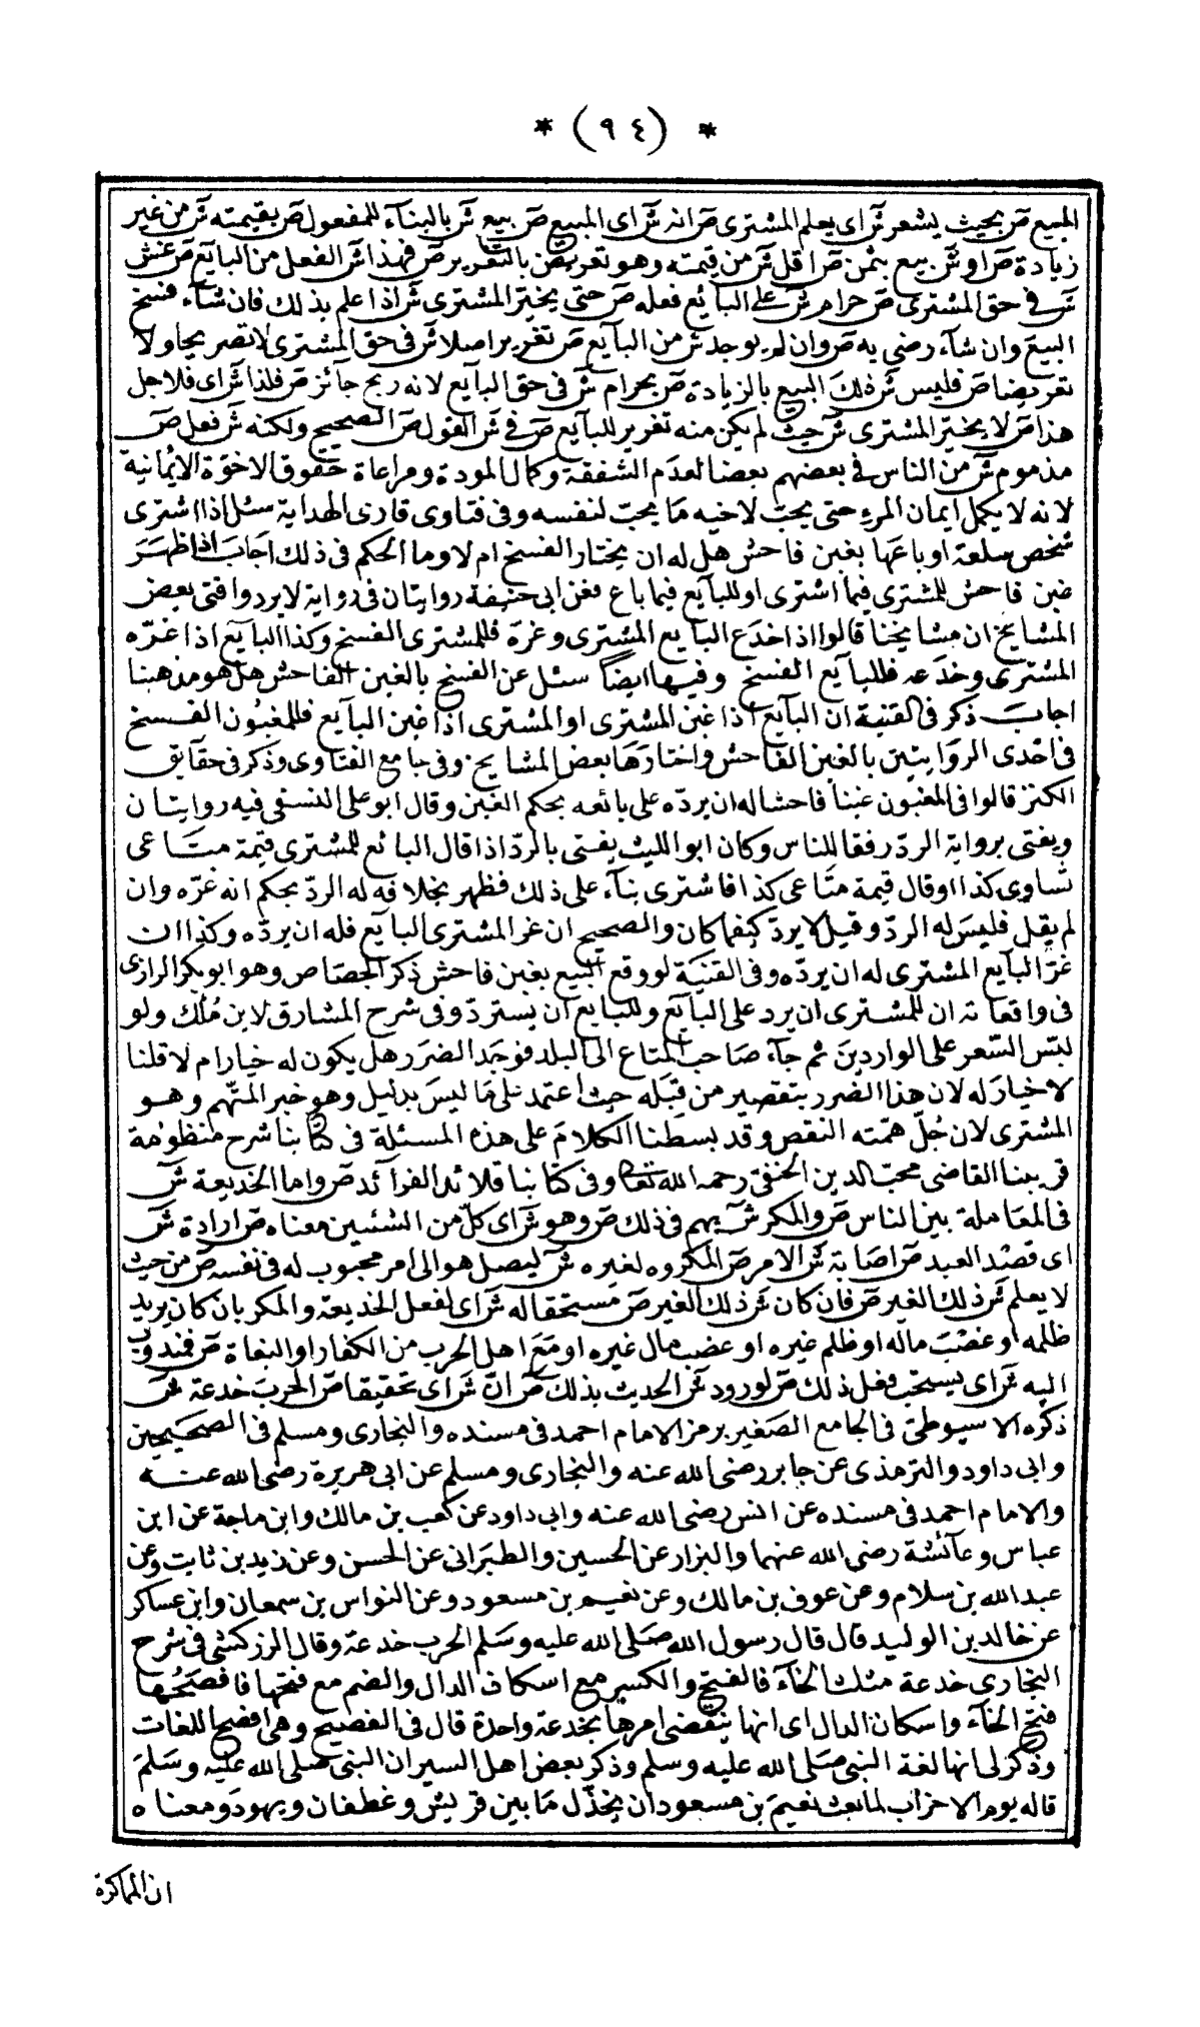 * (٩٤) *
المبيع ص بحيث يشعر ش اى يعلم المشترى ص انه ش اى المبيع ص بيع ش بالبناء للمفعول ص بقيمته ش من غير
زيادة ص او ش بيع بثمن ص اقل ش من قيمته وهو تعريض بالتغرير ص فهذا ش الفعل من البايع ص غش
ش فى حق المشترى ص حرام ش على البائع فعله ص حتى يخير المشترى ش اذا علم بذلك فان شاء فسخ
البيع وان شاء رضي به ص وان لم يوجد ش من البايع ص تغرير اصلا ش فى حق المشترى لا تصريحا ولا
تعريضا ص فليس ش ذلك البيع بالزيادة ص بحرام ش فى حق البايع لانه ربح جائز ص فلذا ش اى فلاجل
هذا ص لا يخير المشترى ش حيث لم يكن منه تغرير للبايع ص فى ش القول ص الصحيح ولكنه ش فعل ص
مذموم ش من الناس فى بعضهم بعضا لعدم الشفقة وكمال المودة ومراعاة حقوق الاخوة الايمانية
لانه لا يكمل ايمان المرء حتى يحب لاخيه ما يحب لنفسه وفى فتاوى قارى الهداية سئل اذا اشترى
شخص سلعة او باعها بغبن فاحش هل له ان يختار الفسخ ام لا وما الحكم فى ذلك اجاب اذا ظهر
غبن فاحش للمشترى فيما اشترى او للبايع فيما باع فعن ابى حنيفة روايتان فى رواية لا يرد وافتى بعض
المشايخ ان مشايخنا قالوا اذا خدع البايع المشترى وغره فللمشترى الفسخ وكذا البايع اذا غره
المشترى وخدعه فللبايع الفسخ وفيها ايضا سئل عن الفسخ بالغبن الفاحش هل هو مذهبنا
اجاب ذكر فى القنية ان البايع اذا غبن المشترى او المشترى اذا غبن البايع فللمغبون الفسخ
فى احدى الروايتين بالغبن الفاحش واختارها بعض المشايخ وفى جامع الفتاوى وذكر فى حقايق
الكنز قالوا فى المغبون غبنا فاحشا له ان يرده على بائعه بحكم الغبن وقال ابو على النسفى فيه روايتان
ويفتى برواية الرد رفقا للناس وكان ابو الليث يفتى بالرد اذا قال البائع للمشترى قيمة متاعى
تساوى كذا او قال قيمة متاعى كذا فاشترى بناء على ذلك فظهر بخلافه له الرد بحكم انه غره وان
لم يقل فليس له الرد وقيل لا يرد كيفما كان والصحيح ان غر المشترى البايع فله ان يرده وكذا ان
غر البايع المشترى له ان يرده وفى القنية لو وقع البيع بغبن فاحش ذكر الجصاص وهو ابو بكر الرازى
فى واقعاته ان للمشترى ان يرد على البايع وللبايع ان يسترد وفى شرح المشارق لابن ملك ولو
لبس السعر على الواردين ثم جاء صاحب المتاع الى البلد فوجد الضرر هل يكون له خيار ام لا قلنا
لا خيار له لان هذا الضرر بتقصير من قبله حيث اعتمد على ما ليس بدليل وهو خبر المتهم وهو
المشترى لان جل همته النقص وقد بسطنا الكلام على هذه المسئلة فى كتابنا شرح منظومة
قريبنا القاضى محب الدين الحنفى رحمه الله تعالى وفى كتابنا قلائد الفرائد ص واما الخديعة ش
فى المعاملة بين الناس ص والمكر ش بهم فى ذلك ص وهو ش اى كل من الشيئين معناه ص ارادة ش
اى قصد العبد ص اصابة ش الامر ص المكروه لغيره ش ليصل هو الى امر محبوب له فى نفسه ص من حيث
لا يعلم ش ذلك الغير ص فان كان ش ذلك الغير ص مستحقا له ش اى لفعل الخديعة والمكر بان كان يريد
ظلمه او غصب ماله او ظلم غيره او غصب مال غيره او مع اهل الحرب من الكفار او البغاة ص فمندوب
اليه ش اى يستحب فعل ذلك ص لورود ش الحديث بذلك ص ان ش اى تحقيقا ص الحرب خدعة ش
ذكره الاسيوطى فى الجامع الصغير برمز الامام احمد فى مسنده والبخارى ومسلم فى الصحيحين
وابى داود والترمذى عن جابر رضى الله عنه والبخارى ومسلم عن ابى هريرة رضى الله عنه
والامام احمد فى مسنده عن انس رضى الله عنه وابى داود عن كعب بن مالك وابن ماجة عن ابن
عباس وعائشة رضى الله عنهما والبزار عن الحسين والطبرانى عن الحسن وعن زيد بن ثابت وعن
عبد الله بن سلام وعن عوف بن مالك وعن نعيم بن مسعود وعن النواس بن سمعان وابن عساكر
عن خالد بن الوليد قال قال رسول الله صلى الله عليه وسلم الحرب خدعة وقال الزركشى فى شرح
البخارى خدعة مثلث الخاء فالفتح والكسر مع اسكان الدال والضم مع فتحها فافصحها
فتح الخاء واسكان الدال اى انها ينقضى امرها بخدعة واحدة قال فى الفصيح وهى افصح اللغات
وذكر لى انها لغة النبى صلى الله عليه وسلم وذكر بعض اهل السير ان النبى صلى الله عليه وسلم
قاله يوم الاحزاب لما بعث نعيم بن مسعود ان يخذل ما بين قريش وغطفان ويهود ومعناه
ان المماكرة